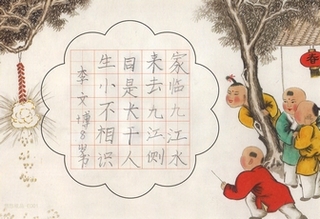 家临九江水
来去九江侧
目是犬干人
生小不相识
李文博8岁书
春